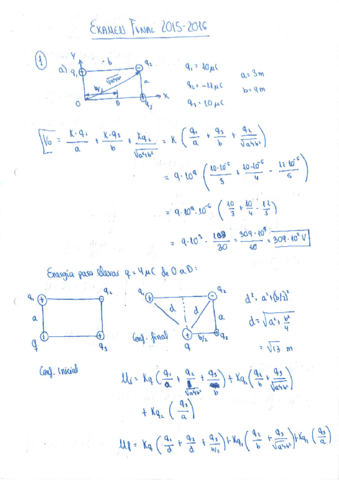 EXAMEN FINAL 2015-2016
1
a)
y
b
q₁
q₂
√a²+b²
a
O
D
x
q₃
q₁ = 10 μC
q₂ = -11 μC
q₃ = 10 μC
a = 3m
b = 4m
V₀ = K·q₁/a + K·q₃/b + Kq₂/√a²+b² = K (q₁/a + q₃/b + q₂/√a²+b²)
= 9·10⁹ (10·10⁻⁶/3 + 10·10⁻⁶/4 - 11·10⁻⁶/5)
= 9·10⁹·10⁻⁶ (10/3 + 10/4 - 11/5)
= 9·10³ ·
Energía para llevar q = 4 μC de O a D:
q₁
q₂
a
a
q
q₃
Conf. inicial
q₁
q₂
d
d
a
Conf. final
q
b/2
q₃
d² = a²+(b/2)²
d = √a²+b²/4
= √13 m
Ui = Kq (q₁/a + q₂/√a²+b² + q₃/b) + Kq₁ (q₂/b + q₃/√a²+b²)
+ Kq₂ (q₃/a)
Uf = Kq (q₁/d + q₂/d + q₃/b/2) + Kq₁ (q₂/b + q₃/√a²+b²) + Kq₂ (q₃/a)